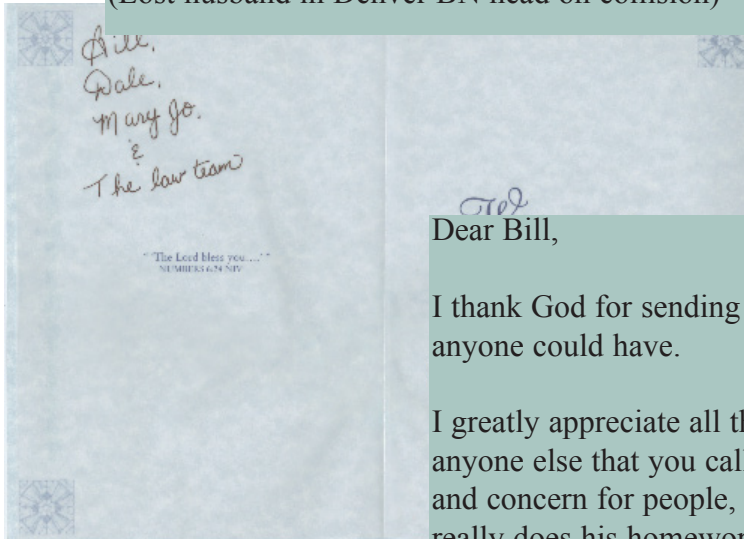 (Lost husband in Denver BN head on collision)
Bill,
Dale,
Mary Jo.
&
The law team
"The Lord bless you...."
NUMBERS 6:24 NIV
Dear Bill,
I thank God for sending
anyone could have.
I greatly appreciate all th
anyone else that you call
and concern for people,
really does his homewor